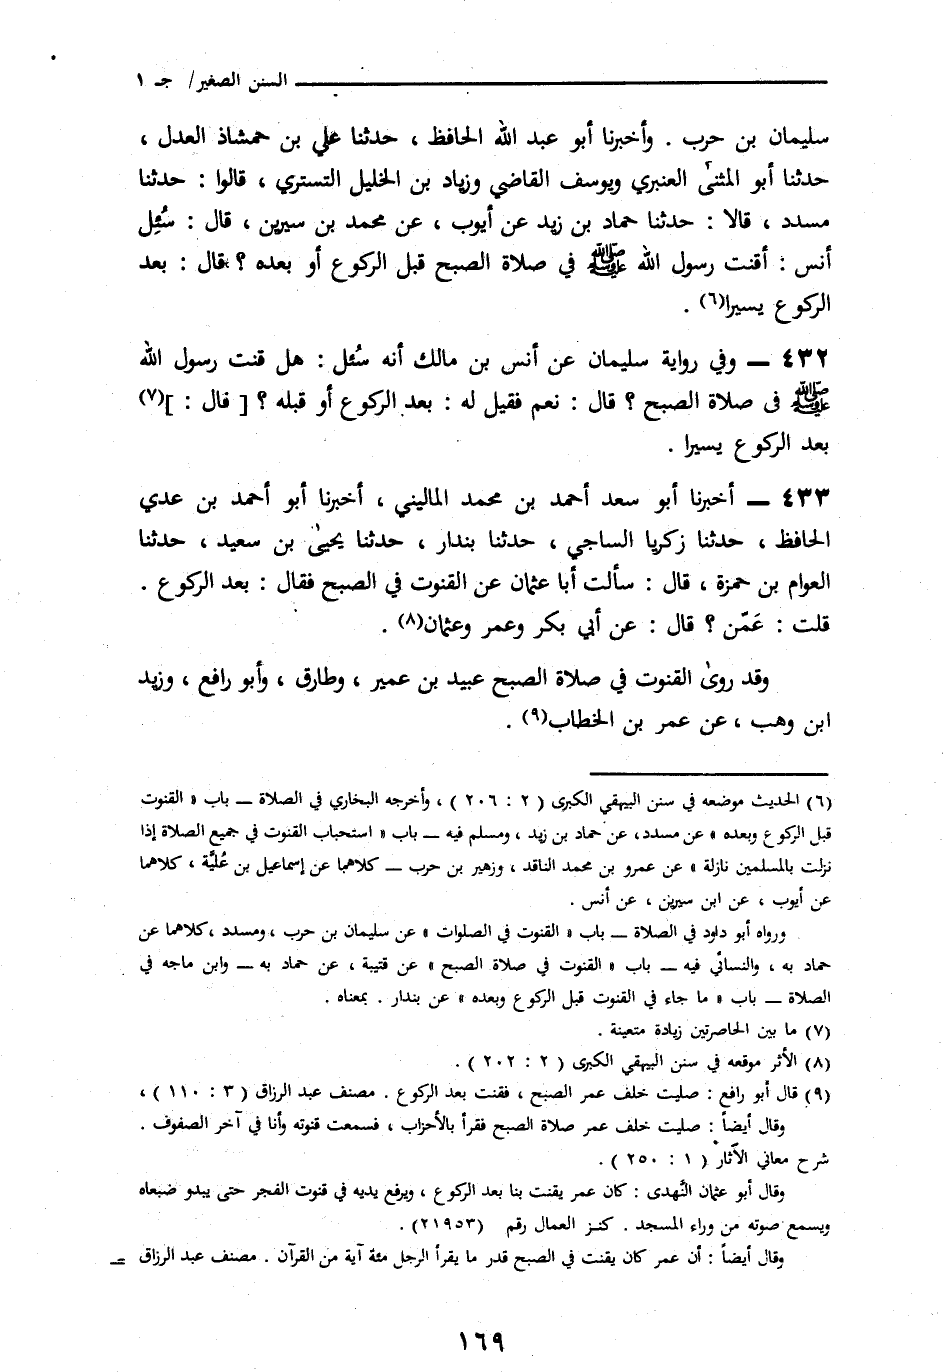 السنن الصغير/ جـ ١
سليمان بن حرب . وأخبرنا أبو عبد الله الحافظ ، حدثنا علي بن حمشاذ العدل ،
حدثنا أبو المثنى العنبري ويوسف القاضي وزياد بن الخليل التستري ، قالوا : حدثنا
مسدد ، قالا : حدثنا حماد بن زيد عن أيوب ، عن محمد بن سيرين ، قال : سُئِل
أنس : أقنت رسول الله ﷺ في صلاة الصبح قبل الركوع أو بعده ؟ قال : بعد
الركوع يسيرا(٦) .
٤٣٢ — وفي رواية سليمان عن أنس بن مالك أنه سُئل : هل قنت رسول الله
ﷺ فى صلاة الصبح ؟ قال : نعم فقيل له : بعد الركوع أو قبله ؟ [ قال : ](٧)
بعد الركوع يسيرا .
٤٣٣ — أخبرنا أبو سعد أحمد بن محمد الماليني ، أخبرنا أبو أحمد بن عدي
الحافظ ، حدثنا زكريا الساجي ، حدثنا بندار ، حدثنا يحيىٰ بن سعيد ، حدثنا
العوام بن حمزة ، قال : سألت أبا عثمان عن القنوت في الصبح فقال : بعد الركوع .
قلت : عَمّن ؟ قال : عن أبي بكر وعمر وعثمان(٨) .
وقد روىٰ القنوت في صلاة الصبح عبيد بن عمير ، وطارق ، وأبو رافع ، وزيد
ابن وهب ، عن عمر بن الخطاب(٩) .
(٦) الحديث موضعه في سنن البيهقي الكبرى ( ٢ : ٢٠٦ ) ، وأخرجه البخاري في الصلاة — باب « القنوت
قبل الركوع وبعده » عن مسدد، عن حماد بن زيد ، ومسلم فيه — باب « استحباب القنوت في جميع الصلاة إذا
نزلت بالمسلمين نازلة » عن عمرو بن محمد الناقد ، وزهير بن حرب — كلاهما عن إسماعيل بن عُليَّة ، كلاهما
عن أيوب ، عن ابن سيرين ، عن أنس .
ورواه أبو داود في الصلاة — باب « القنوت في الصلوات » عن سليمان بن حرب ، ومسدد ، كلاهما عن
حماد به ، والنسائي فيه — باب « القنوت في صلاة الصبح » عن قتيبة ، عن حماد به — وابن ماجه في
الصلاة — باب « ما جاء في القنوت قبل الركوع وبعده » عن بندار . بمعناه .
(٧) ما بين الحاصرتين زيادة متعينة .
(٨) الأثر موقعه في سنن البيهقي الكبرى ( ٢ : ٢٠٢ ) .
(٩) قال أبو رافع : صليت خلف عمر الصبح ، فقنت بعد الركوع . مصنف عبد الرزاق ( ٣ : ١١٠ ) ،
وقال أيضاً : صليت خلف عمر صلاة الصبح فقرأ بالأحزاب ، فسمعت قنوته وأنا في آخر الصفوف .
شرح معاني الآثار ( ١ : ٢٥٠ ) .
وقال أبو عثمان النَّهدى : كان عمر يقنت بنا بعد الركوع ، ويرفع يديه في قنوت الفجر حتى يبدو ضبعاه
ويسمع صوته من وراء المسجد . كنز العمال رقم (٢١٩٥٣) .
وقال أيضاً : أن عمر كان يقنت في الصبح قدر ما يقرأ الرجل مئة آية من القرآن . مصنف عبد الرزاق =
١٦٩